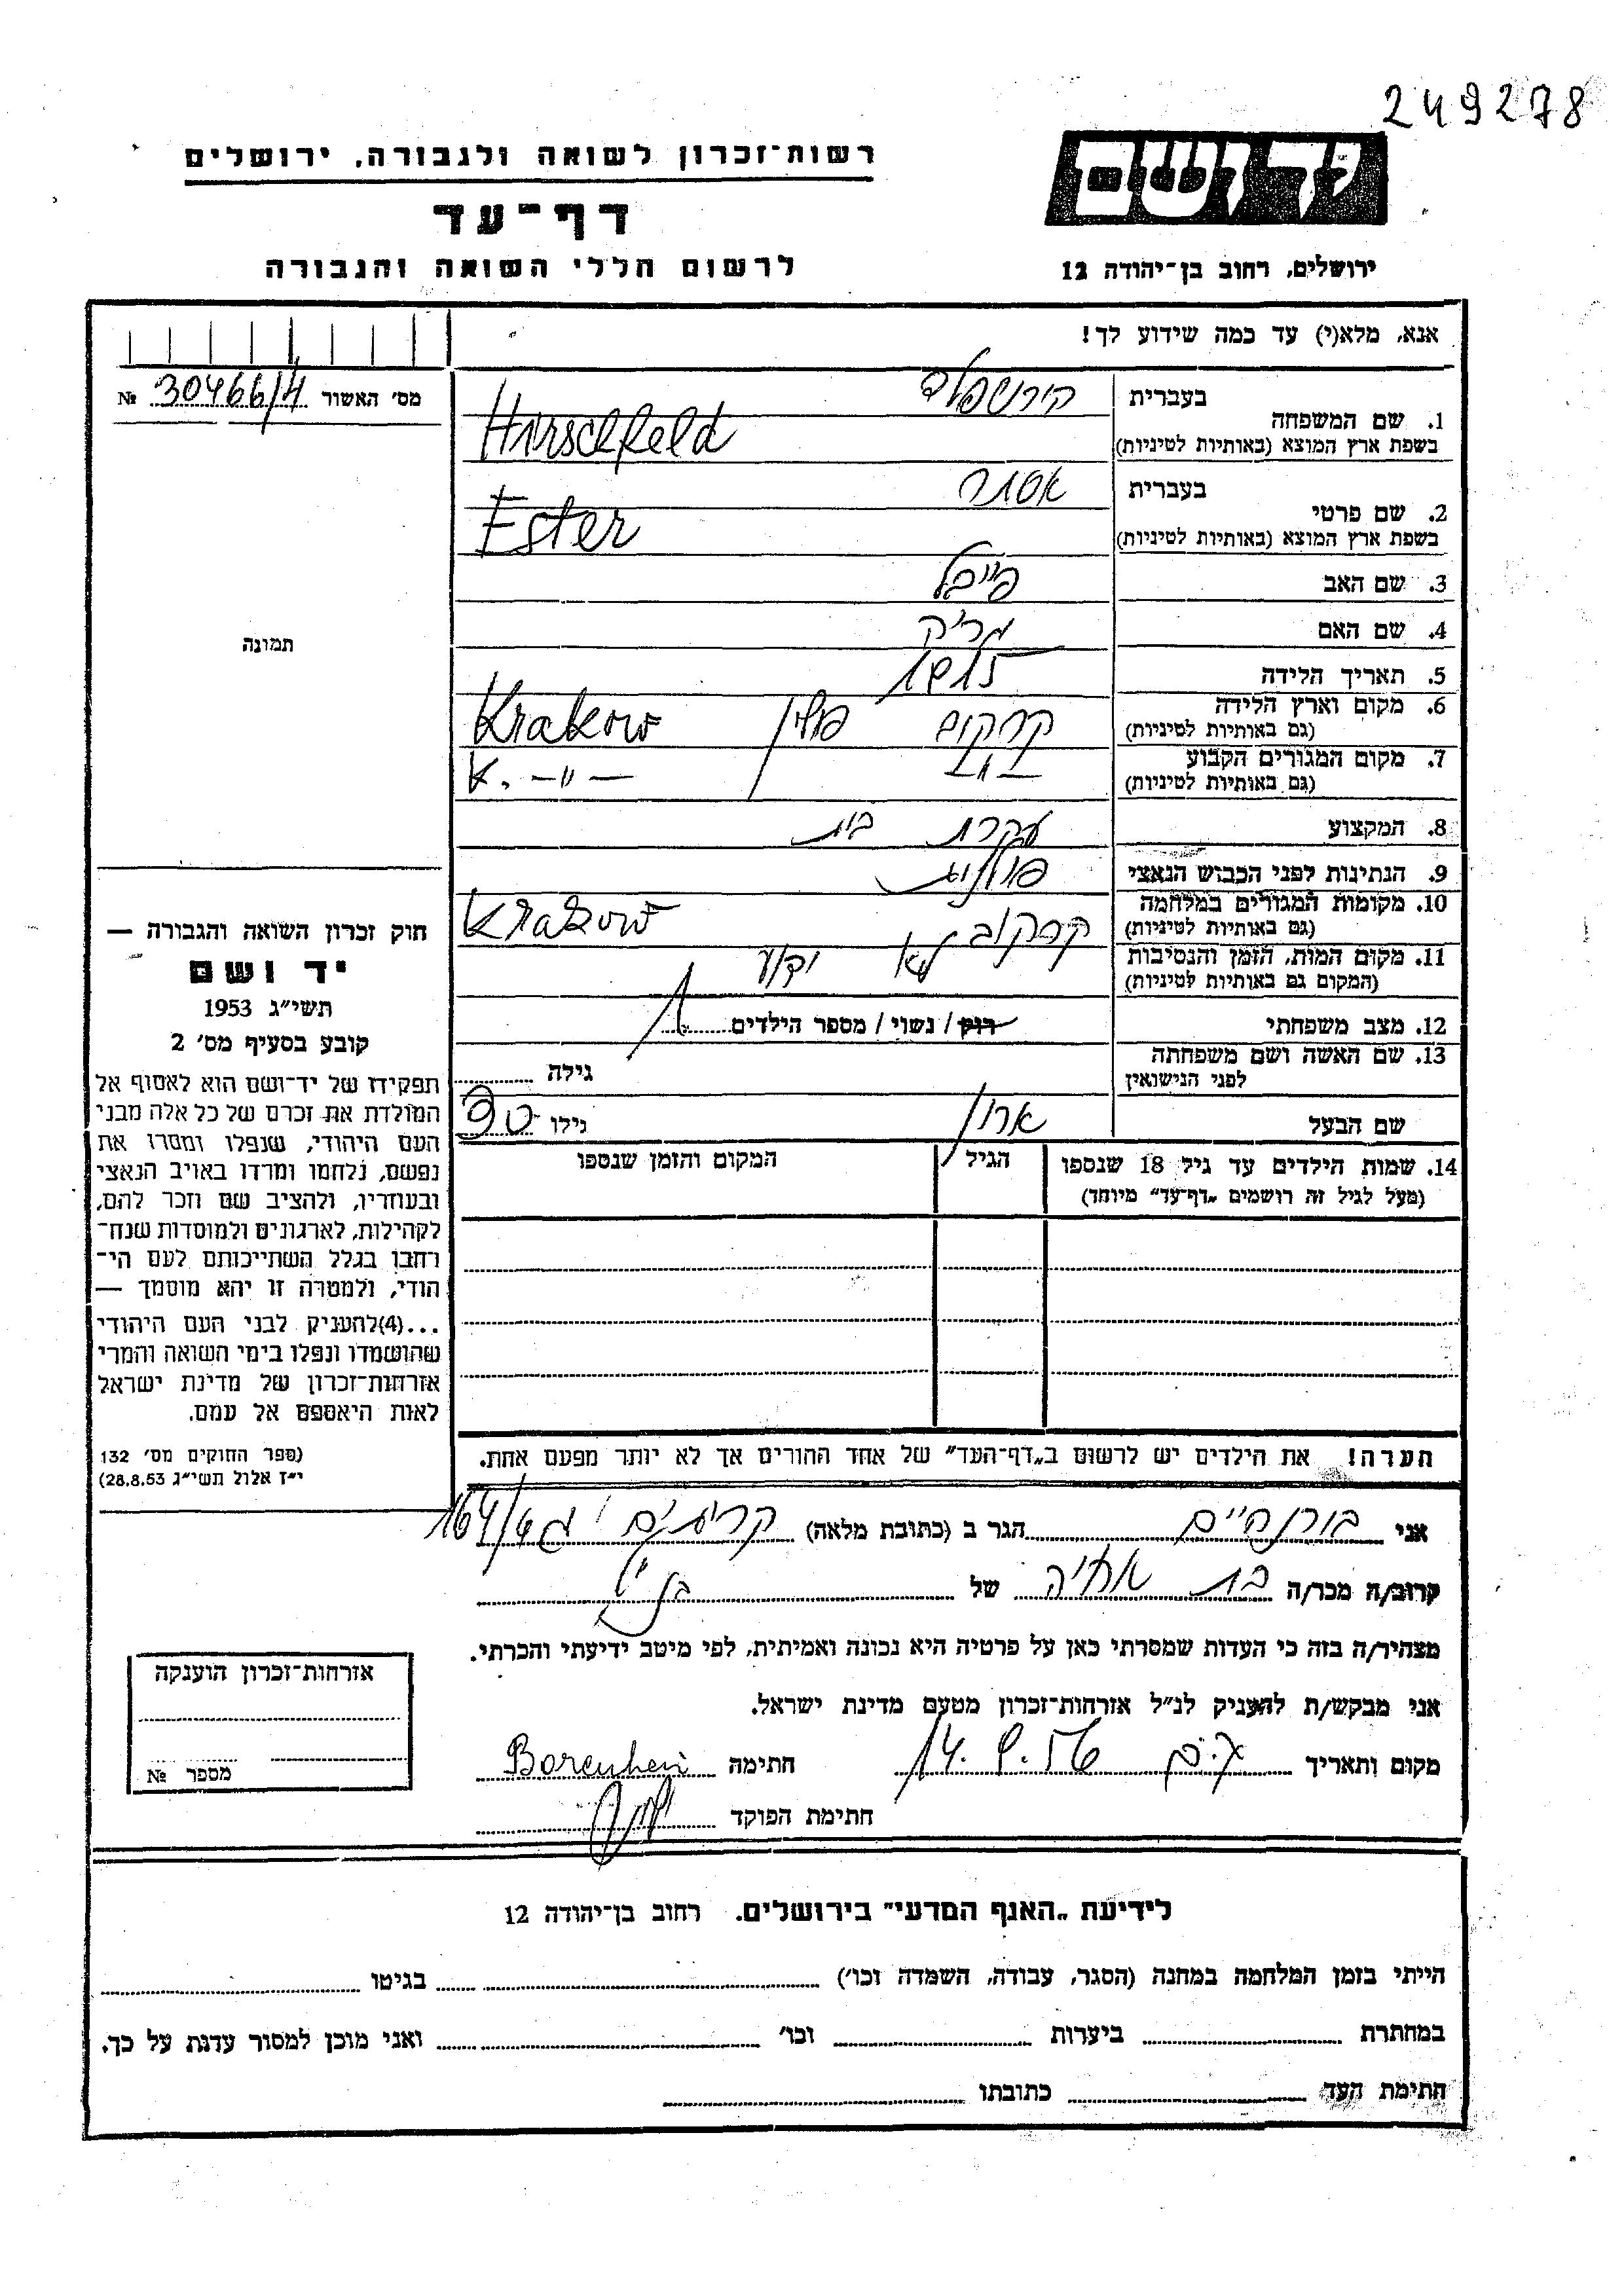 249278
יד ושם
רשות־זכרון לשואה ולגבורה, ירושלים
דף־עד
ירושלים, רחוב בן־יהודה 12
לרשום חללי השואה והגבורה
אנא, מלא(י) עד כמה שידוע לך!
מס׳ האשור 30466/4 №
1. שם המשפחה
בעברית הירשפלד
בשפת ארץ המוצא (באותיות לטיניות) Hirschfeld
2. שם פרטי
בעברית אסתר
בשפת ארץ המוצא (באותיות לטיניות) Ester
3. שם האב פייבל
4. שם האם
5. תאריך הלידה 1915
6. מקום וארץ הלידה (גם באותיות לטיניות) קרקוב פולין Krakow
7. מקום המגורים הקבוע (גם באותיות לטיניות) — ״ — K. — ״ —
8. המקצוע עקרת בית
9. הנתינות לפני הכבוש הנאצי פולנית
10. מקומות המגורים במלחמה (גם באותיות לטיניות) קרקוב Krakow
11. מקום המות, הזמן והנסיבות (המקום גם באותיות לטיניות) לא ידוע
12. מצב משפחתי רוק / נשוי / מספר הילדים 1
13. שם האשה ושם משפחתה לפני הנישואין גילה
שם הבעל אהרון גילו 30
14. שמות הילדים עד גיל 18 שנספו
(מעל לגיל זה רושמים „דף־עד״ מיוחד)
הגיל
המקום והזמן שנספו
הערה! את הילדים יש לרשום ב„דף־העד״ של אחד ההורים אך לא יותר מפעם אחת.
תמונה
חוק זכרון השואה והגבורה —
יד ושם
תשי״ג 1953
קובע בסעיף מס׳ 2
תפקידו של יד־ושם הוא לאסוף אל
המולדת את זכרם של כל אלה מבני
העם היהודי, שנפלו ומסרו את
נפשם, נלחמו ומרדו באויב הנאצי
ובעוזריו, ולהציב שם וזכר להם,
לקהילות, לארגונים ולמוסדות שנח־
רבו בגלל השתייכותם לעם הי־
הודי, ולמטרה זו יהא מוסמך —
...(4)להעניק לבני העם היהודי
שהושמדו ונפלו בימי השואה והמרי
אזרחות־זכרון של מדינת ישראל
לאות היאספם אל עמם.
(ספר החוקים מס׳ 132
י״ז אלול תשי״ג 28.8.53)
אני בורנהיים הגר ב (כתובת מלאה) 164/
קרוב/ה מכר/ה בת אחיה של
מצהיר/ה בזה כי העדות שמסרתי כאן על פרטיה היא נכונה ואמיתית, לפי מיטב ידיעתי והכרתי.
אני מבקש/ת להעניק לנ״ל אזרחות־זכרון מטעם מדינת ישראל.
מקום ותאריך 14.9.56 חתימה Borenhein
חתימת הפוקד
אזרחות־זכרון הוענקה
מספר №
לידיעת „האגף המדעי״ בירושלים, רחוב בן־יהודה 12
הייתי בזמן המלחמה במחנה (הסגר, עבודה, השמדה וכו׳) בגיטו
במחתרת ביערות וכו׳ ואני מוכן למסור עדות על כך.
חתימת העד כתובתו